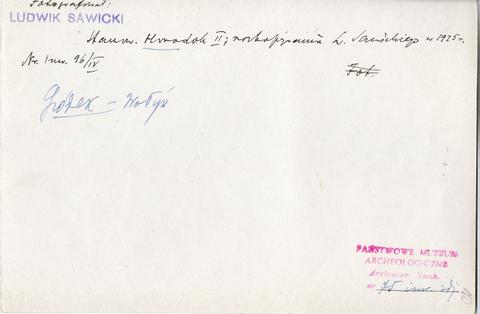 Fotografował:
LUDWIK SAWICKI
Stanow. Horodok II; rozkopywania L. Sawickiego w 1925 r.
Nr. Inw. 96/IV
Fot.
Gródek – Wołyń
PAŃSTWOWE MUZEUM
ARCHEOLOGICZNE
Archiwum Nauk.
nr 75 inw. zdj